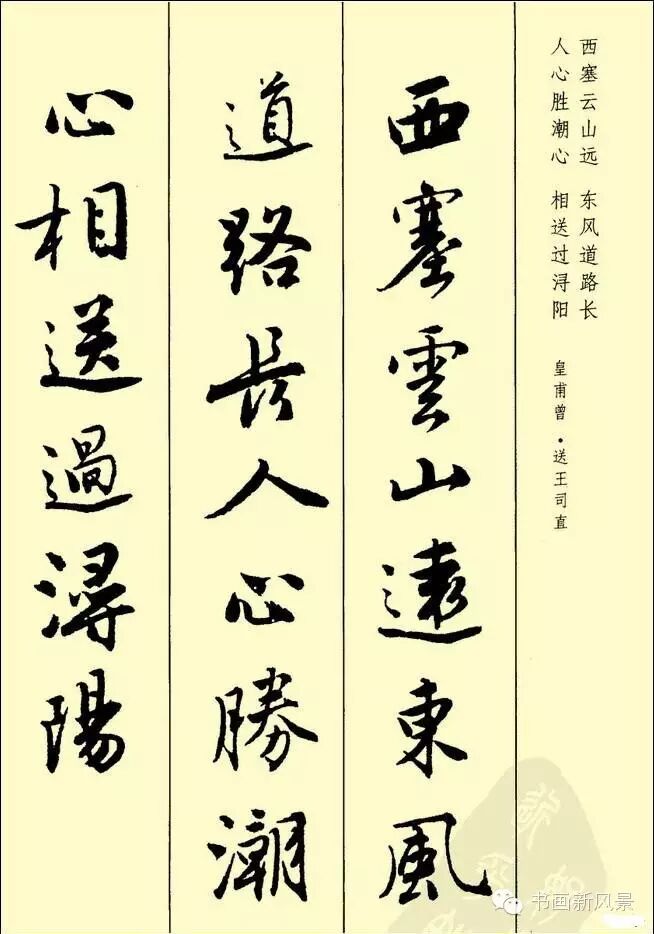 西塞云山远 东风道路长
人心胜潮心 相送过浔阳
皇甫曾·送王司直
西塞雲山遠東風
道路長人心勝潮
心相送過潯陽
书画新风景